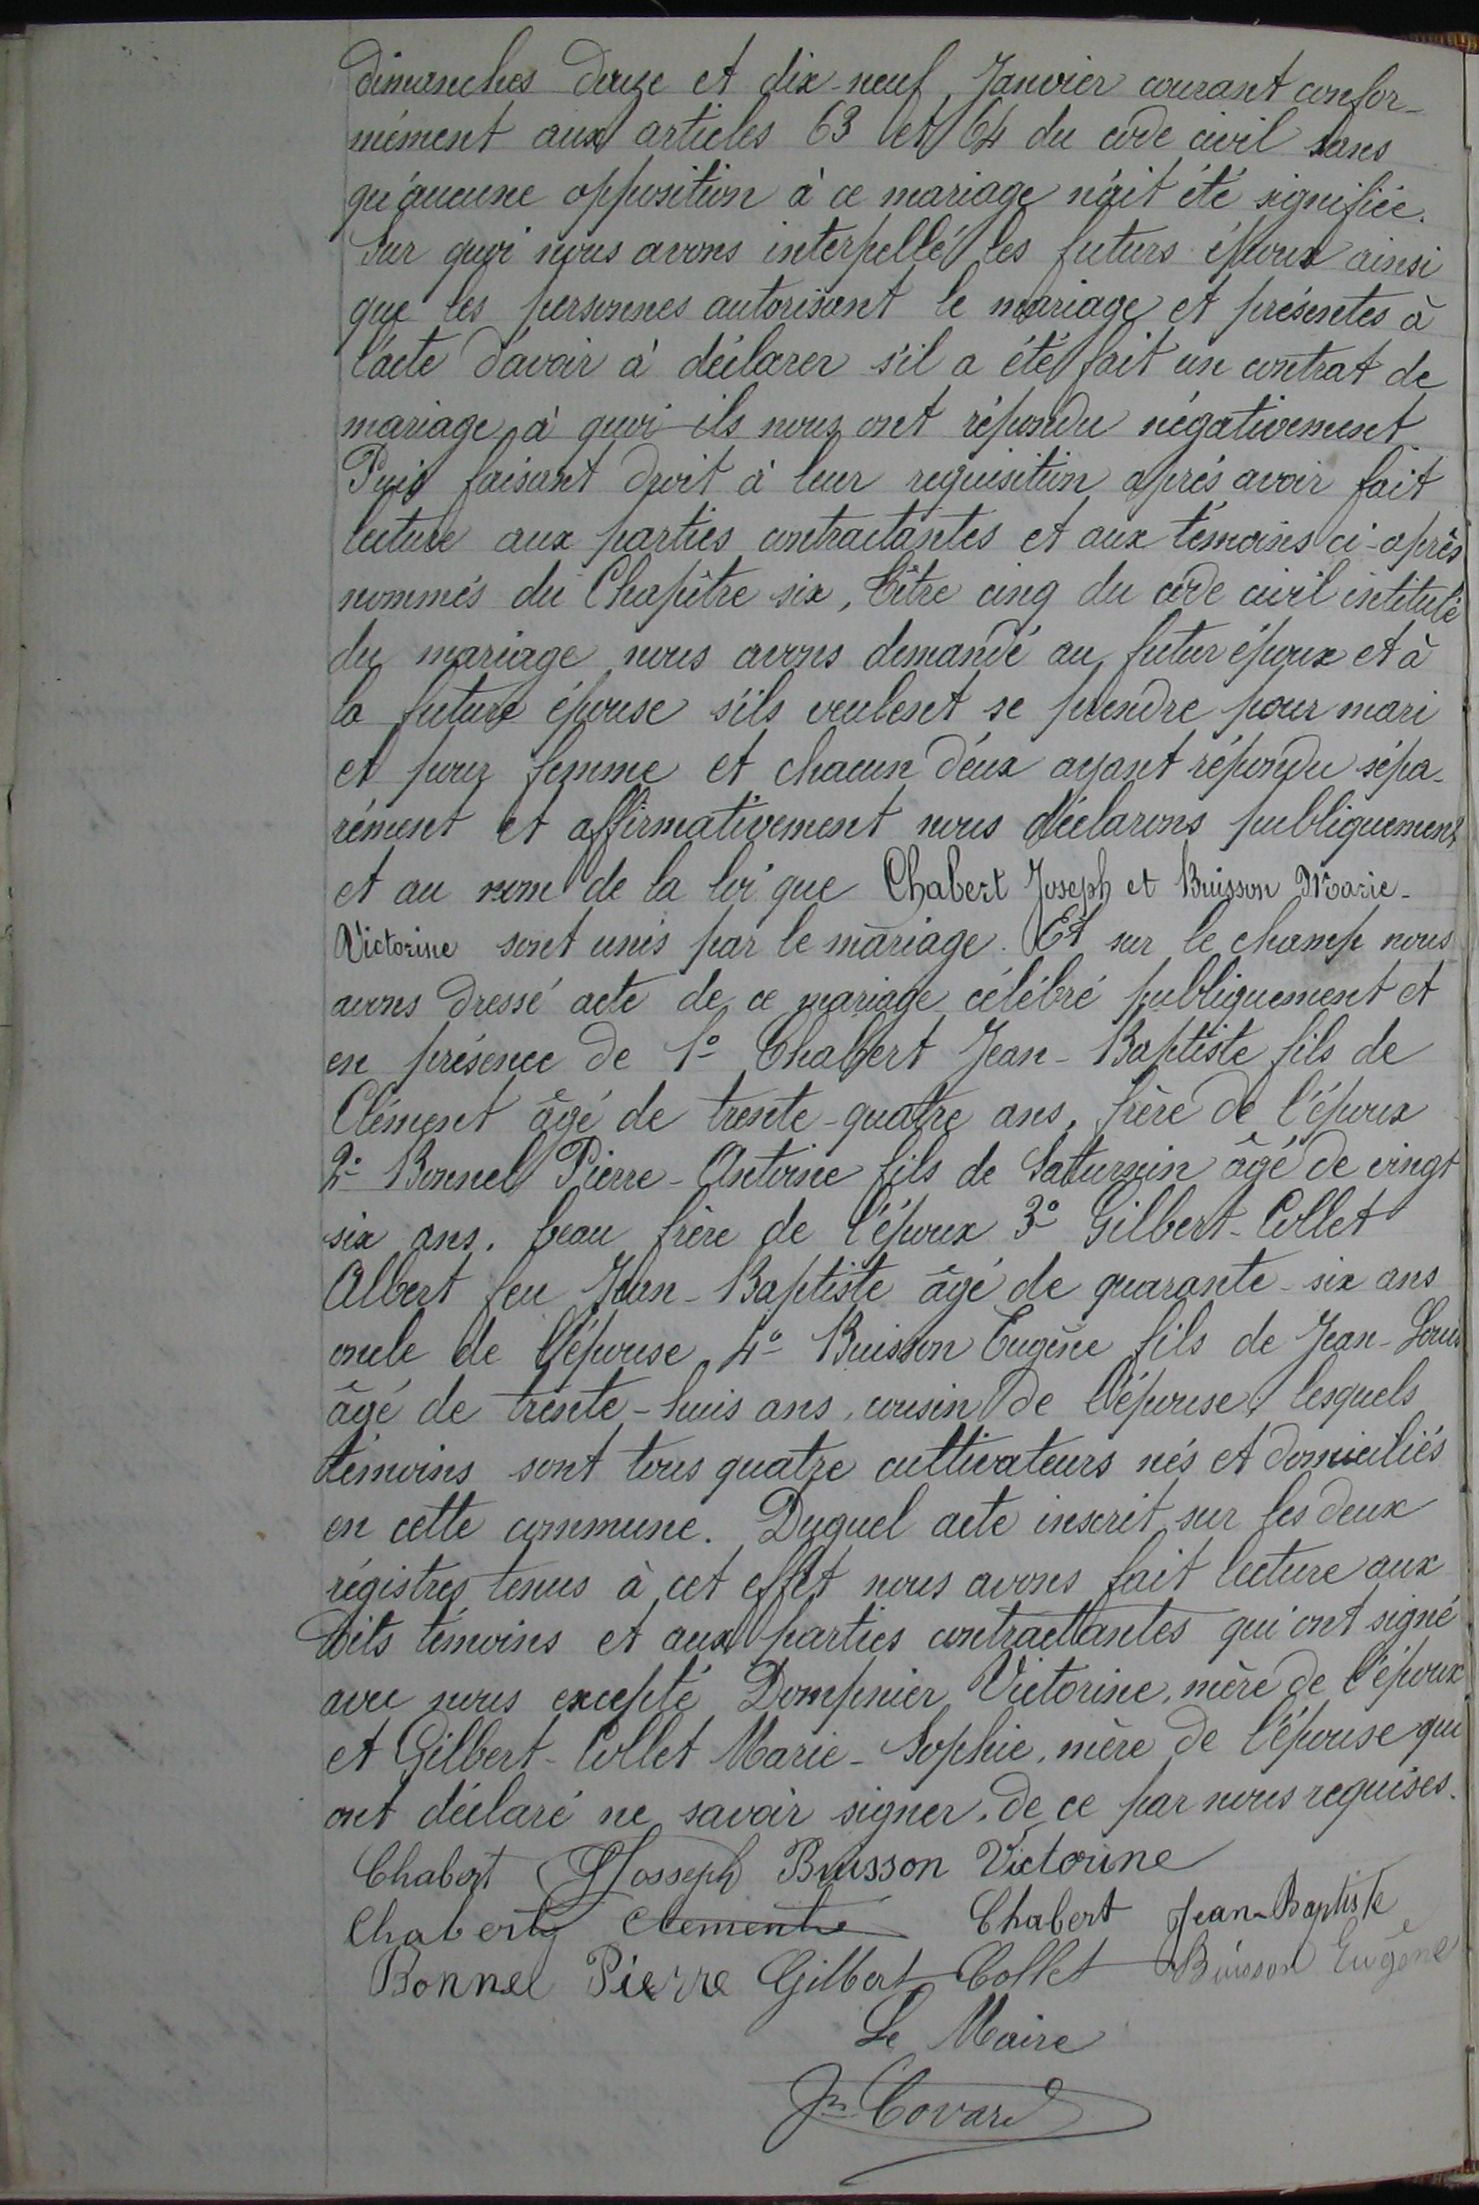 dimanches douze et dix-neuf Janvier courant confor-
mément aux articles 63 et 64 du code civil sans
qu'aucune opposition à ce mariage n'ait été signifiée.
Sur quoi nous avons interpellé les futurs époux ainsi
que les personnes autorisant le mariage et présentes à
l'acte d'avoir à déclarer s'il a été fait un contrat de
mariage à quoi ils nous ont répondu négativement
Puis faisant droit à leur requisition après avoir fait
lecture aux parties contractantes et aux témoins ci-après
nommés du Chapître six, titre cinq du code civil intitulé
du mariage nous avons demandé au futur époux et à
la future épouse s'ils veulent se prendre pour mari
et pour femme et chacun d'eux ayant répondu sépa-
rément et affirmativement nous déclarons publiquement
et au nom de la loi que Chabert Joseph et Buisson Marie-
Victorine sont unis par le mariage. Et sur le champ nous
avons dressé acte de ce mariage célébré publiquement et
en présence de 1º Chabert Jean-Baptiste fils de
Clément âgé de trente-quatre ans, frère de l'époux
2º Bonnel Pierre-Antoine fils de Saturnin âgé de vingt
six ans, beau frère de l'époux 3º Gilbert-Collet
Albert feu Jean-Baptiste âgé de quarante-six ans
oncle de l'épouse 4º Buisson Eugène fils de Jean-Louis
âgé de trente-huis ans, cousin de l'épouse, lesquels
témoins sont tous quatre cultivateurs nés et domiciliés
en cette commune. Duquel acte inscrit sur les deux
régistres tenus à cet effet nous avons fait lecture aux
dits témoins et aux parties contractantes qui ont signé
avec nous excepté Dompnier Victorine, mère de l'époux
et Gilbert-Collet Marie-Sophie, mère de l'épouse qui
ont déclaré ne savoir signer, de ce par nous requises.
Chabert Josseph Buisson Victorine
Chabert Clement Chabert Jean-Baptiste
Bonnel Pierre Gilbert Collet Buisson Eugène
Le Maire
Jn Covarel